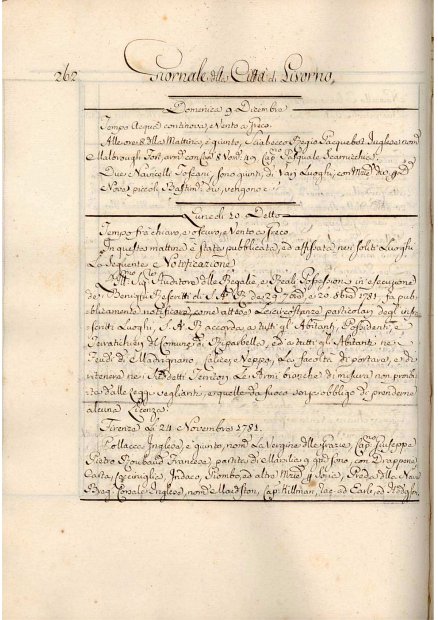 262
Giornale della Città di Livorno,
Domenica 9 Dicembre
Tempo Acqua continova, e Vento a Greco.
Alle ore 8 della Mattina, è giunto, Sciabecco Regio Pacquebot Inglese nom
Malbrough Fort, arm con Can 8 Uom 49 Cap Pasquale Scarnichia
Due Navicelli Toscani, sono giunti, di Varj Luoghi, con
Nove piccoli Bastim di, vengono
Lunedì 10 Detto
Tempo frà chiaro, e oscuro, Vento a Greco.
In questa mattina è stata pubblicata, ed affissata nei soliti Luoghi
La seguente Notificazione
Ill Sig Auditore delle Regalie, e Reali Possessioni in esecuzione
de Benigni Rescritti di S. A. R. de 29 7bre, e 20 8bre 1781, fa pub-
blicamente notificare, come attese Le circostanze particolari degl' infra-
scritti Luoghi, S. A. R. accorda a tutti gl' Abitanti, Possidenti, e
Terratichieri del Comune di Riparbella, ed a tutti gl' Abitanti ne
Feudi di Madrignano, Calice, e Veppo, La facoltà di portare, e di
ritenere ne Suddetti Territori Le Armi bianche di misura non proibi-
ta dalle Leggi veglianti, e quelle da fuoco senz' obbligo di prenderne
alcuna Licenza.
Firenze Li 24 Novembre 1781.
Pollacca Inglese, è giunta, nom La Vergine delle Grazie, Cap Giuseppe
Pietro Rombaud Francese, partita di Marsilia 9 sono, con Drapperie
Carta, Cocciniglia, Indaco, Piombo, ed altre Merci, Preda della Nave
Inglese, nom Maidston, Cap Killman,